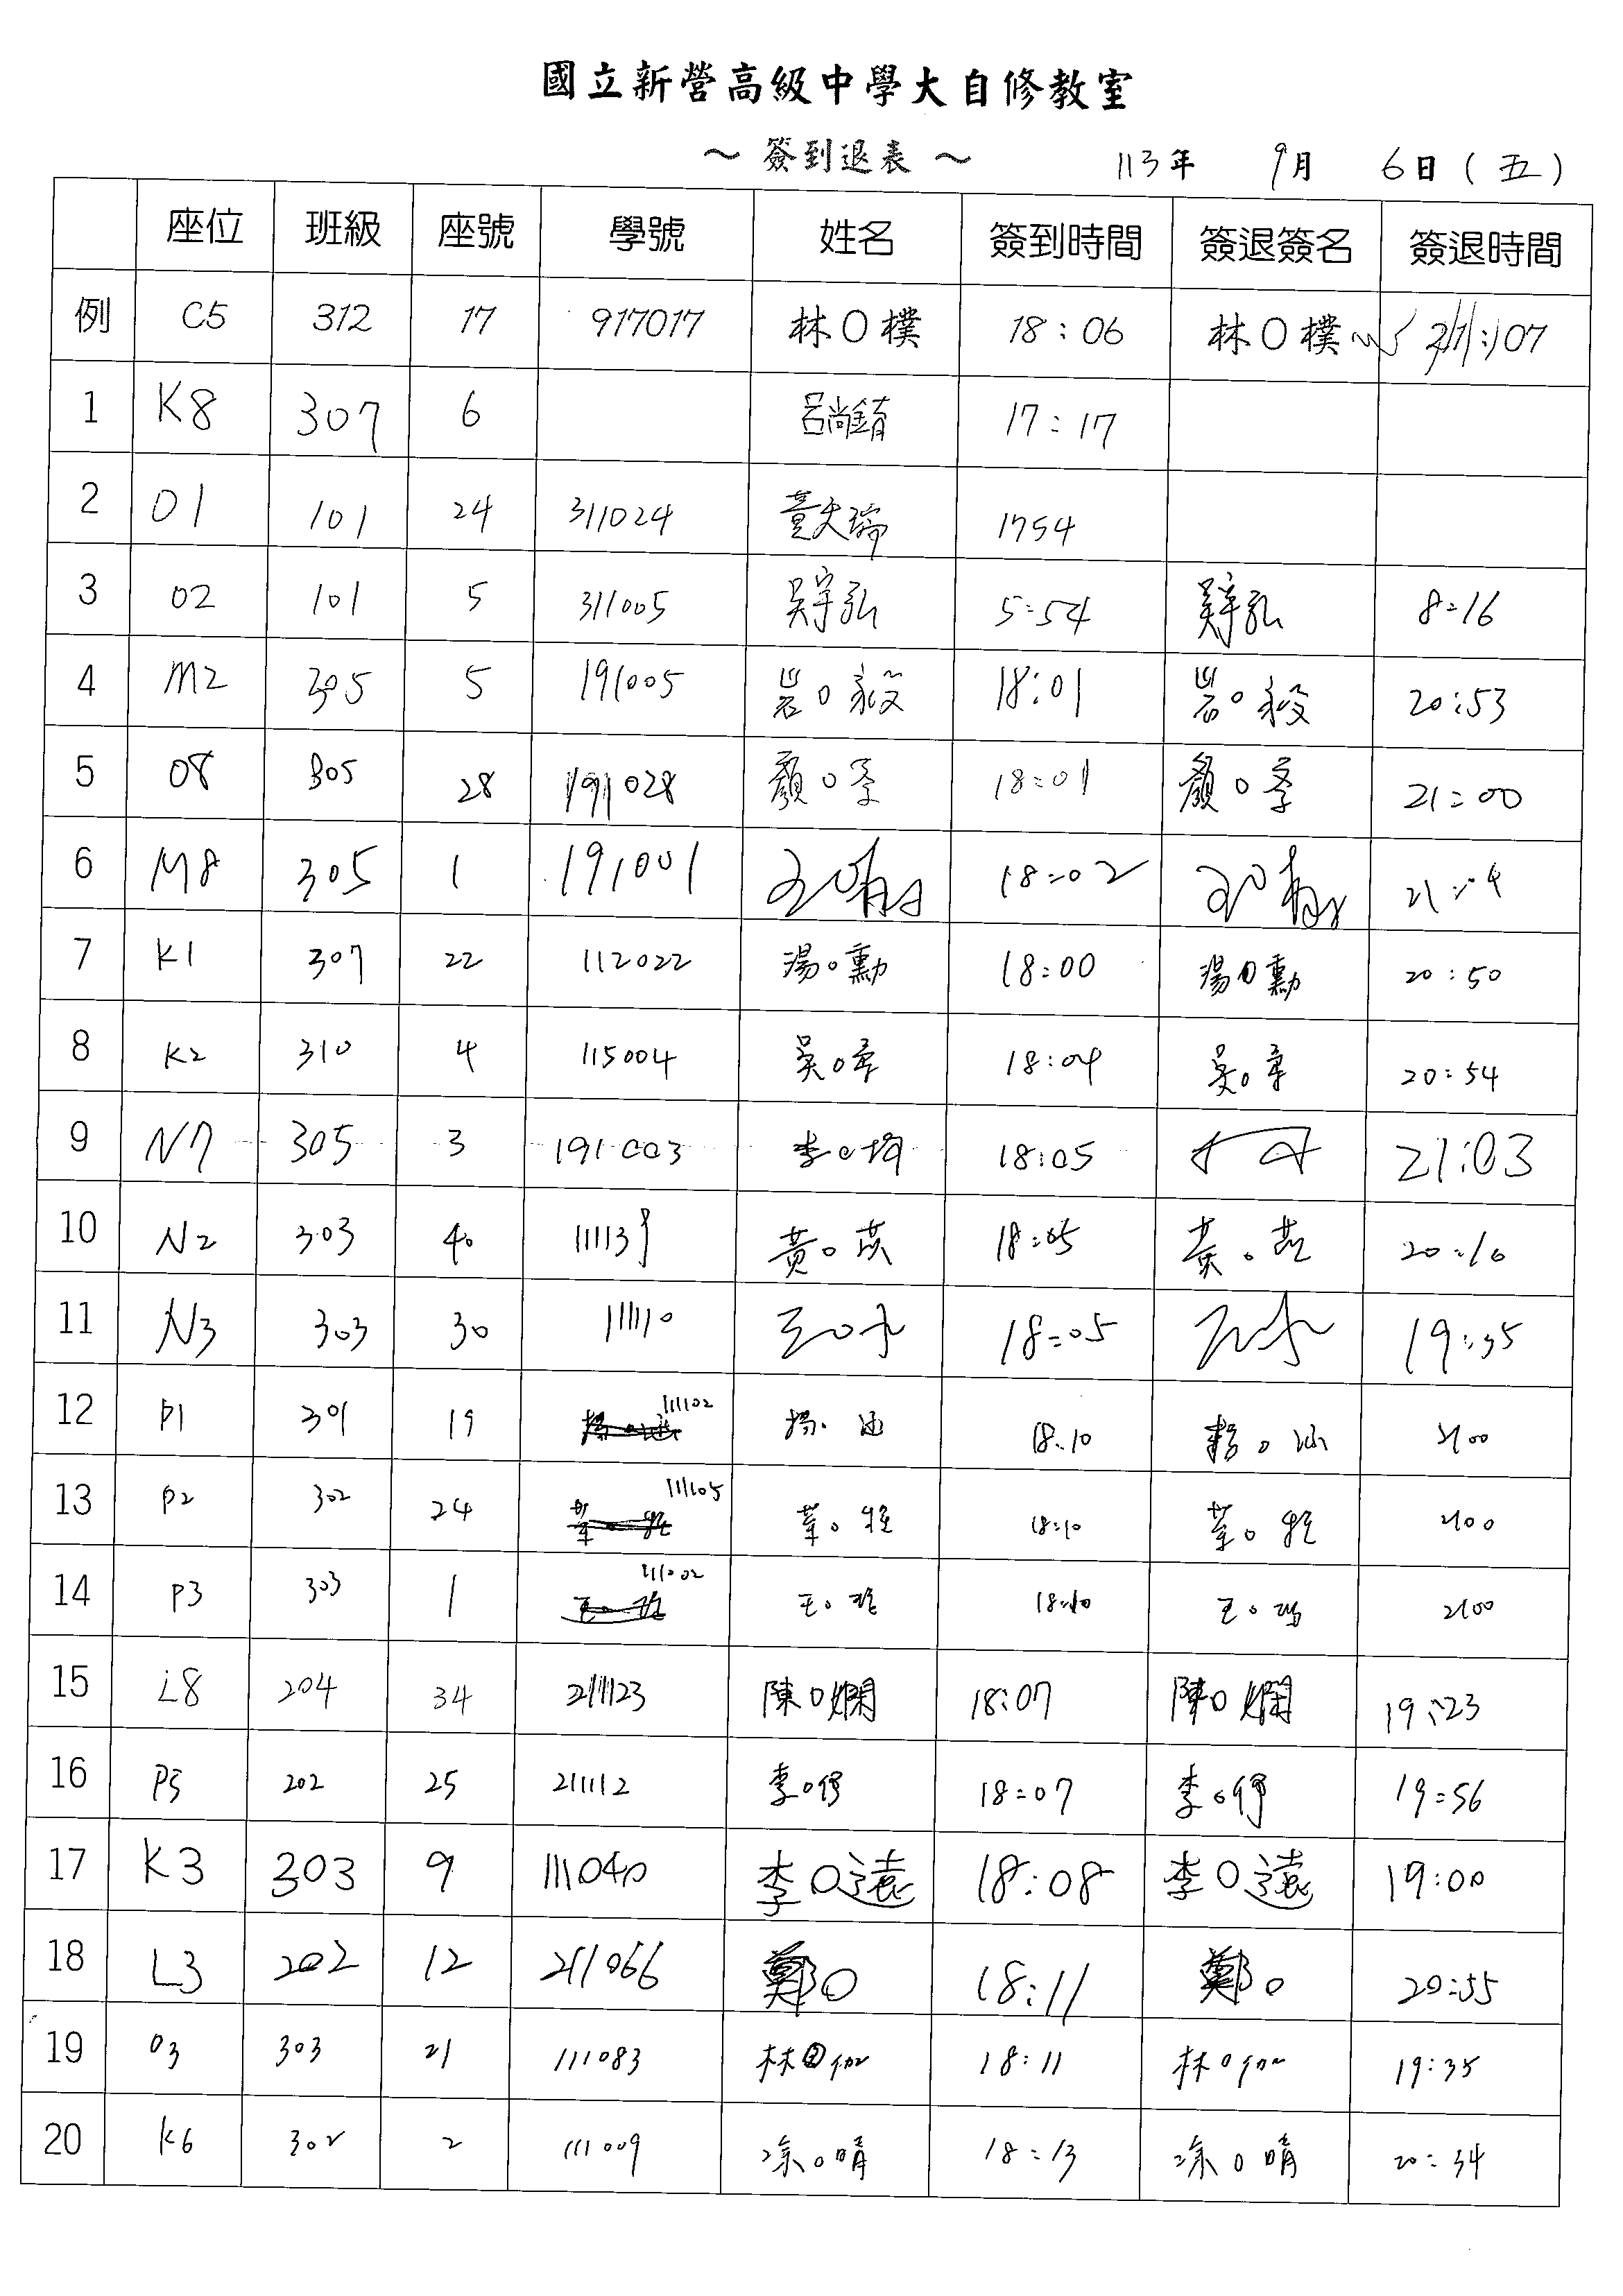 國立新營高級中學大自修教室
～ 簽到退表 ～ 113年 9月 6日（五）
座位 班級 座號 學號 姓名 簽到時間 簽退簽名 簽退時間
例 C5 312 17 917017 林O樸 18:06 林O樸 21:07
1 K8 307 6 呂尚錥 17:17
2 O1 101 24 311024 1754
3 02 101 5 311005 吳宇弘 5:54 吳宇弘 8:16
4 M2 305 5 191005 岩O毅 18:01 岩O毅 20:53
5 08 305 28 191028 顏O季 18:01 顏O季 21:00
6 M8 305 1 191001 18:02 21:04
7 K1 307 22 112022 湯O勳 18:00 湯O勳 20:50
8 K2 310 4 115004 吳O幸 18:04 吳O幸 20:54
9 N7 305 3 191003 李O 18:05 21:03
10 N2 303 40 111139 黃O 18:05 黃O 20:10
11 N3 303 30 111110 王O 18:05 19:35
12 P1 301 19 111102 楊O涵 18:10 楊O涵 2100
13 P2 302 24 111105 葉O 18:10 葉O 2100
14 P3 303 1 111002 王O 18:10 王O 2100
15 L8 204 34 211123 陳O嫻 18:07 陳O嫻 19:23
16 P5 202 25 211112 李O 18:07 李O 19:56
17 K3 303 9 111040 李O遠 18:08 李O遠 19:00
18 L3 202 12 211066 鄭O 18:11 鄭O 20:55
19 03 303 21 111083 林O伽 18:11 林O伽 19:35
20 K6 302 2 111009 涂O晴 18:13 涂O晴 20:34